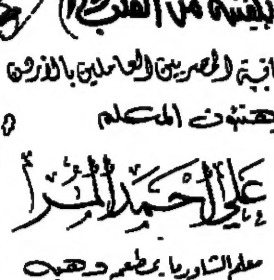 من القلب
المصريين العاملين بالأردن
يهنئون المعلم
علي أحمد المرأ
معلم الشاورما بمطعم وهبه